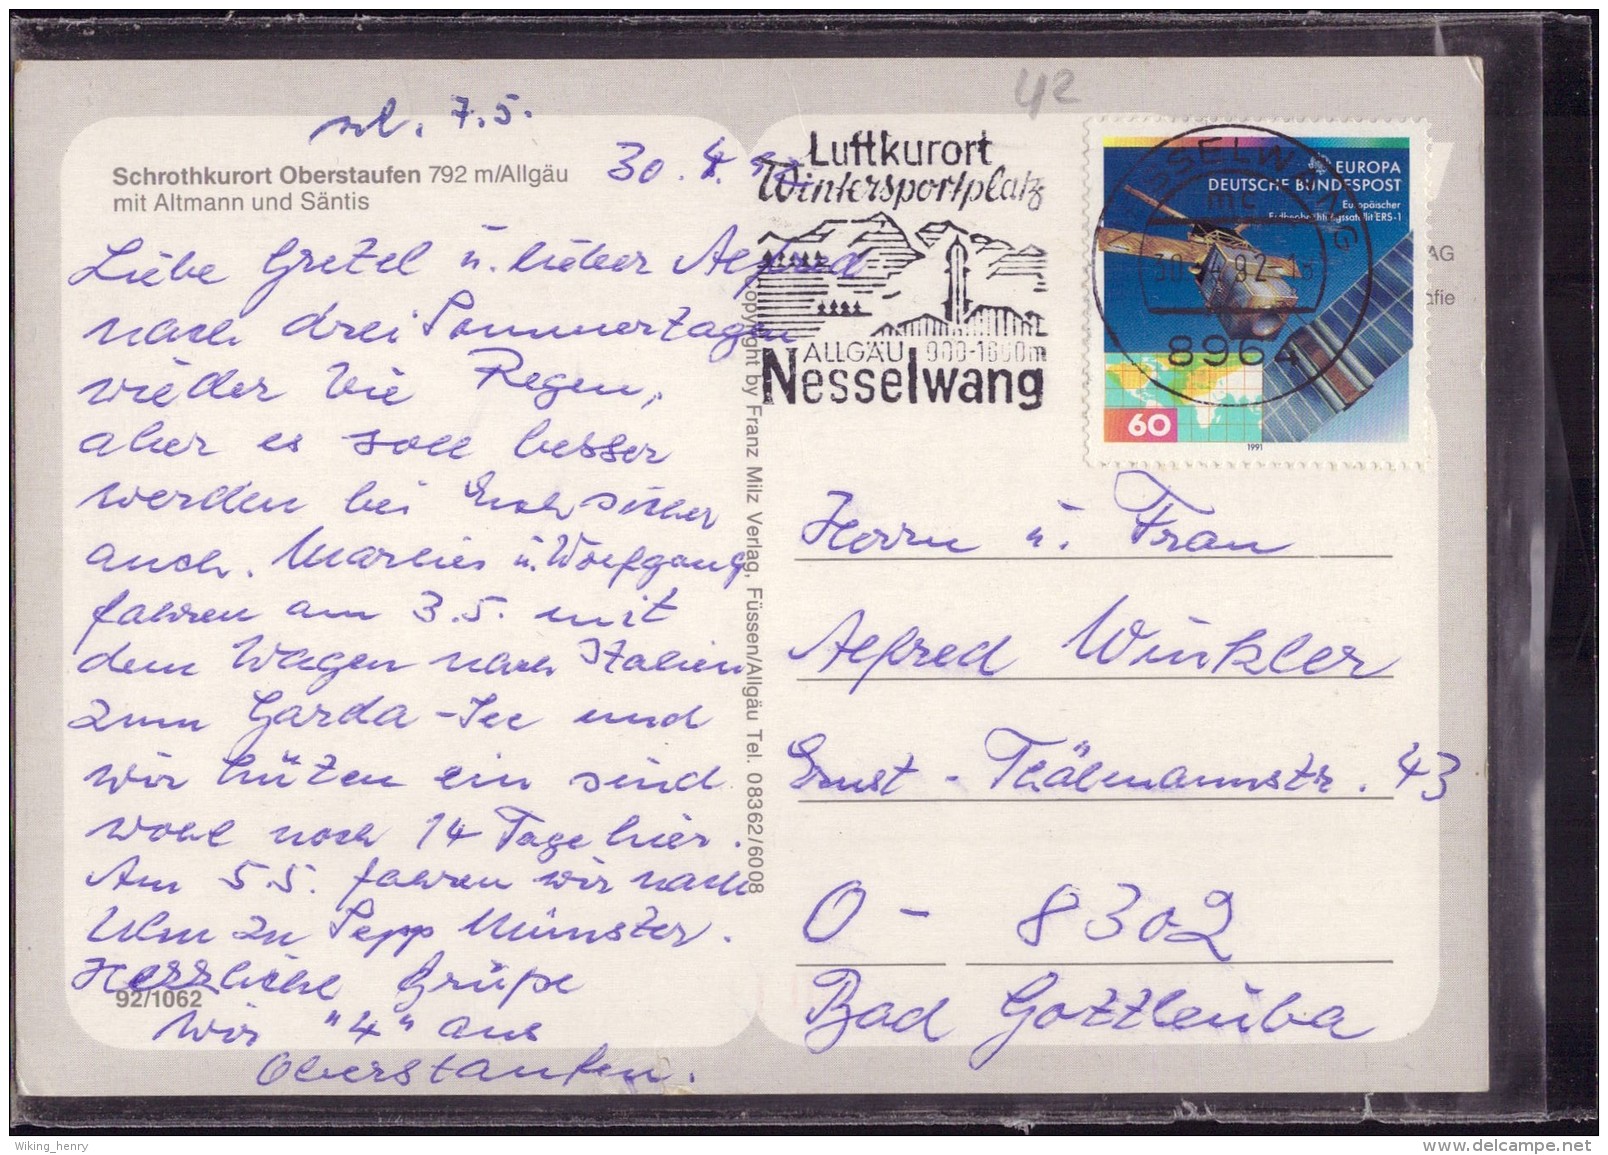 42
erl. 7.5.
30.4.92
Schrothkurort Oberstaufen 792 m/Allgäu
mit Altmann und Säntis
Liebe Gretel u. lieber Alfred
nach drei Sommertagen
wieder wie Regen,
aber es soll besser
werden bei Euch sicher
auch. Marlies u. Wolfgang
fahren am 3.5. mit
dem Wagen nach Italien
zum Garda-See und
wir hüten ein sind
wohl noch 14 Tage hier.
Am 5.5. fahren wir nach
Ulm zu Sepp Münster.
Herzliche Grüße
92/1062
Wir "4" aus
Oberstaufen.
Copyright by Franz Milz Verlag, Füssen/Allgäu Tel. 08362/6008
Luftkurort
Wintersportplatz
ALLGÄU 900-1600m
Nesselwang
NESSELWANG
mc
30.-4.92-13
8964
EUROPA
DEUTSCHE BUNDESPOST
Europäischer
Erdbeobachtungssatellit ERS-1
60
1991
AG
afie
Herrn u. Frau
Alfred Winkler
Ernst-Thälmannstr. 43
O-8302
Bad Gottleuba
Wiking_henry
www.delcampe.net